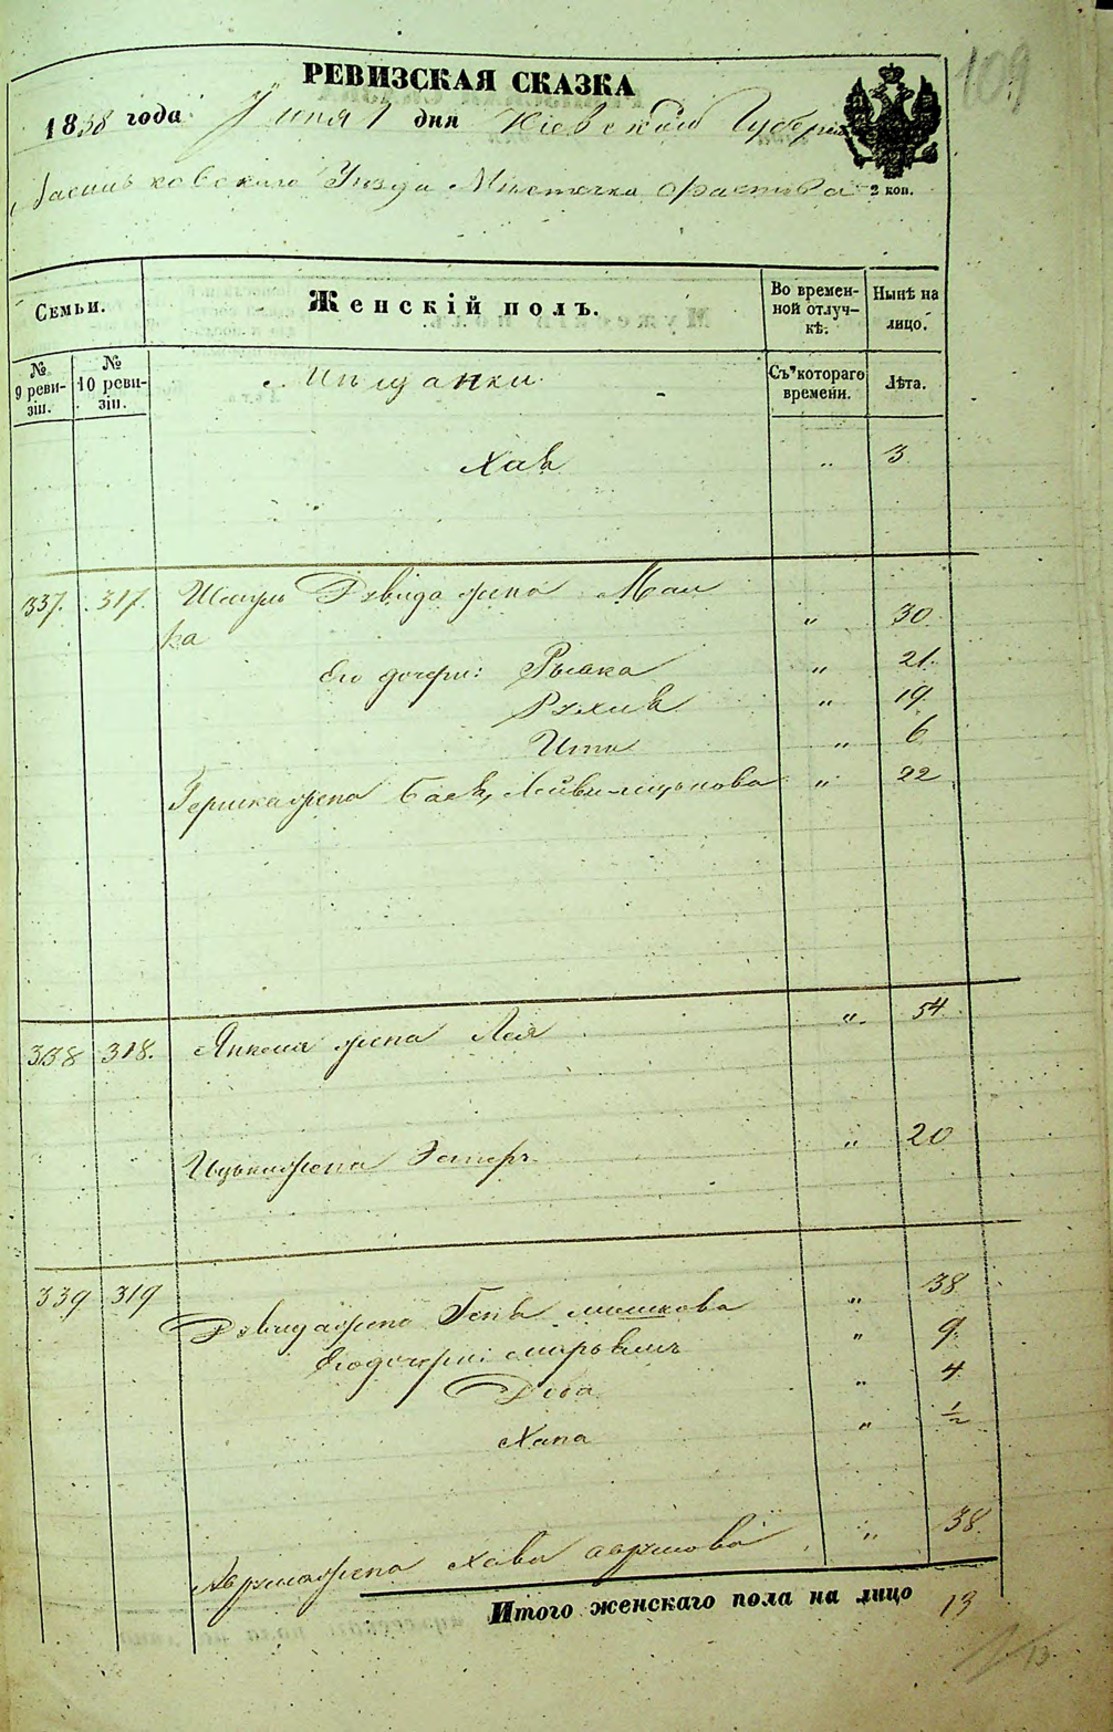 109
РЕВИЗСКАЯ СКАЗКА
1858 года Июня 1 дня Кіевской Губерніи
Васильковскаго Уезда Местечка Фастова
2 коп.
Семьи.
Женскій полъ.
Во времен-
ной отлуч-
кѣ.
Нынѣ на
лицо.
№
9 реви-
зіи.
№
10 реви-
зіи.
Мѣщанки
Съ котораго
времени.
Лѣта.
Хая " 3
337. 317. Шмуля Дувида жена Мал
ка " 30
Его дочери: Рывка " 21.
Рухля " 19.
Ита " 6
Гершка жена Бася, Лейви-Ицькова " 22
338 318. Янкеля жена Лея " 54
Ицька жена Эстеръ " 20
339 319
Дувида жена Геня Мошкова " 38
Его дочери: " 9.
Доба " 4
Хана " 1/2
жена Хава Аврумова " 38.
Итого женскаго пола на лицо 13
13.